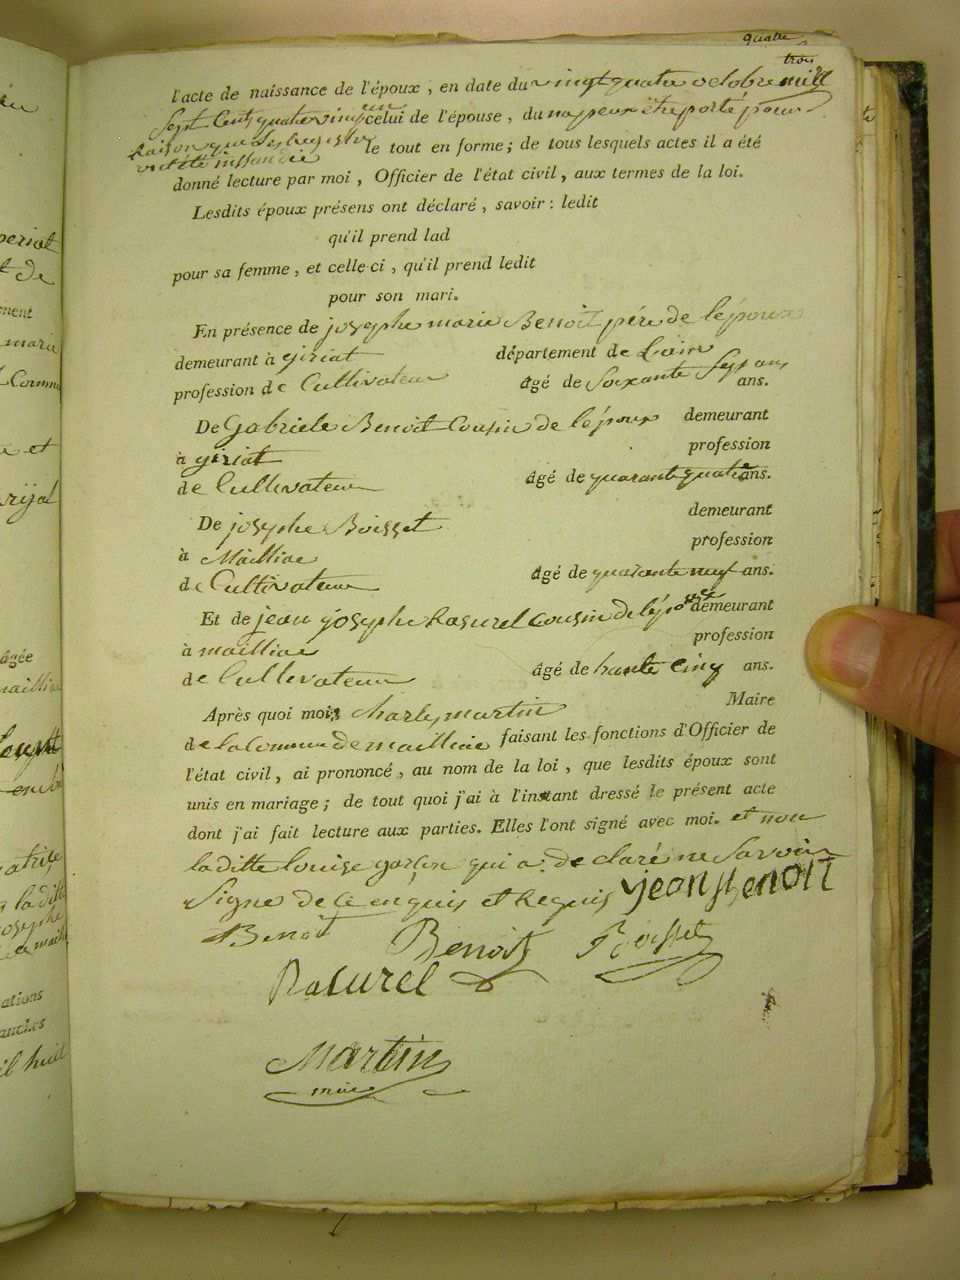 quatre
trois
l'acte de naissance de l'époux, en date du vingt quatre octobre mill
Sept Cent quatre vingt un celui de l'épouse, du na peux être porté pour
Raison que les Registre
le tout en forme; de tous lesquels actes il a été
ont été insandié
donné lecture par moi, Officier de l'état civil, aux termes de la loi.
Lesdits époux présens ont déclaré, savoir: ledit
qu'il prend lad
pour sa femme, et celle-ci, qu'il prend ledit
pour son mari.
En présence de josephe marie Benoit père de lépoux
demeurant à giriat département de Lain
profession de Cultivateur âgé de Soixante Sept ans ans.
De Gabriele Benoit Cousin de lépoux demeurant
à giriat profession
de Cultivateur âgé de quarante quatre ans.
De josephe Boisset demeurant
à Mailliac profession
de Cultivateur âgé de quarante neuf ans.
Et de jean josephe Rasurel cousin de lépouse demeurant
à mailliac profession
de Cultivateur âgé de trante Cinq ans.
Après quoi moi, Charles martin Maire
de la Commune de mailliac faisant les fonctions d'Officier de
l'état civil, ai prononcé, au nom de la loi, que lesdits époux sont
unis en mariage; de tout quoi j'ai à l'instant dressé le présent acte
dont j'ai fait lecture aux parties. Elles l'ont signé avec moi. et non
la ditte louise qui a déclaré ne Savoir
Signe de ce enquis et Requis jean Benoit
Benoit Benoit Boisset
Rasurel
Martin
maire
periat
t de
ment
marie
Commu
e et
âgée
maillia
la ditte
josephe
ations
il huit